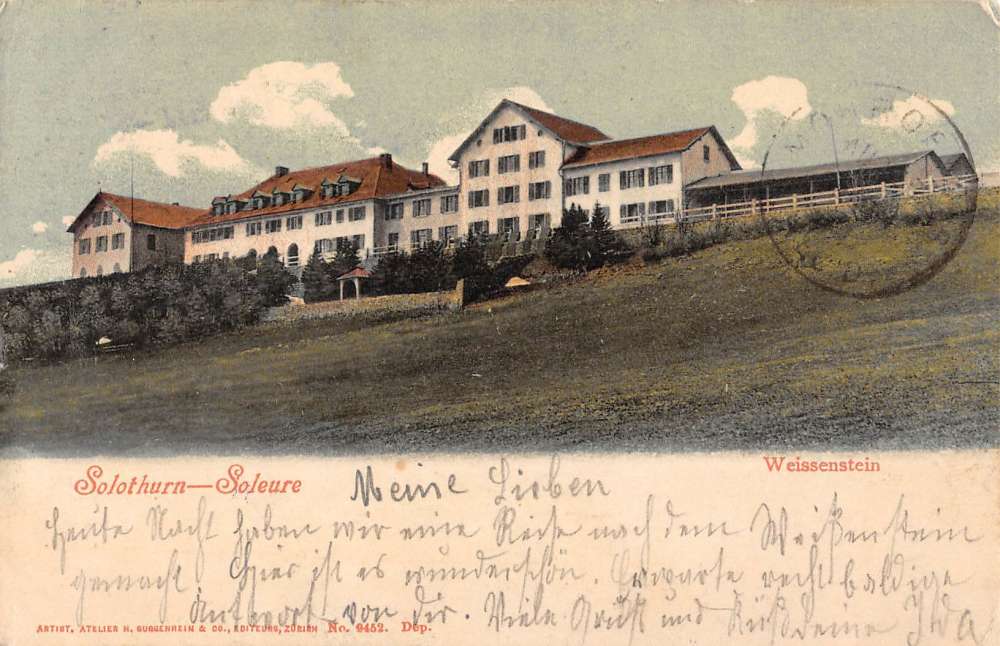 Solothurn—Soleure
Weissenstein
Meine Lieben
Heute Nacht haben wir eine Reise nach dem Weißenstein
gemacht. Hier ist es wunderschön. Erwarte recht baldige
Antwort von dir. Viele Grüsse und Küsse deine Ida
ARTIST. ATELIER H. GUGGENHEIM & CO., EDITEURS, ZÜRICH No. 9452. Dep.